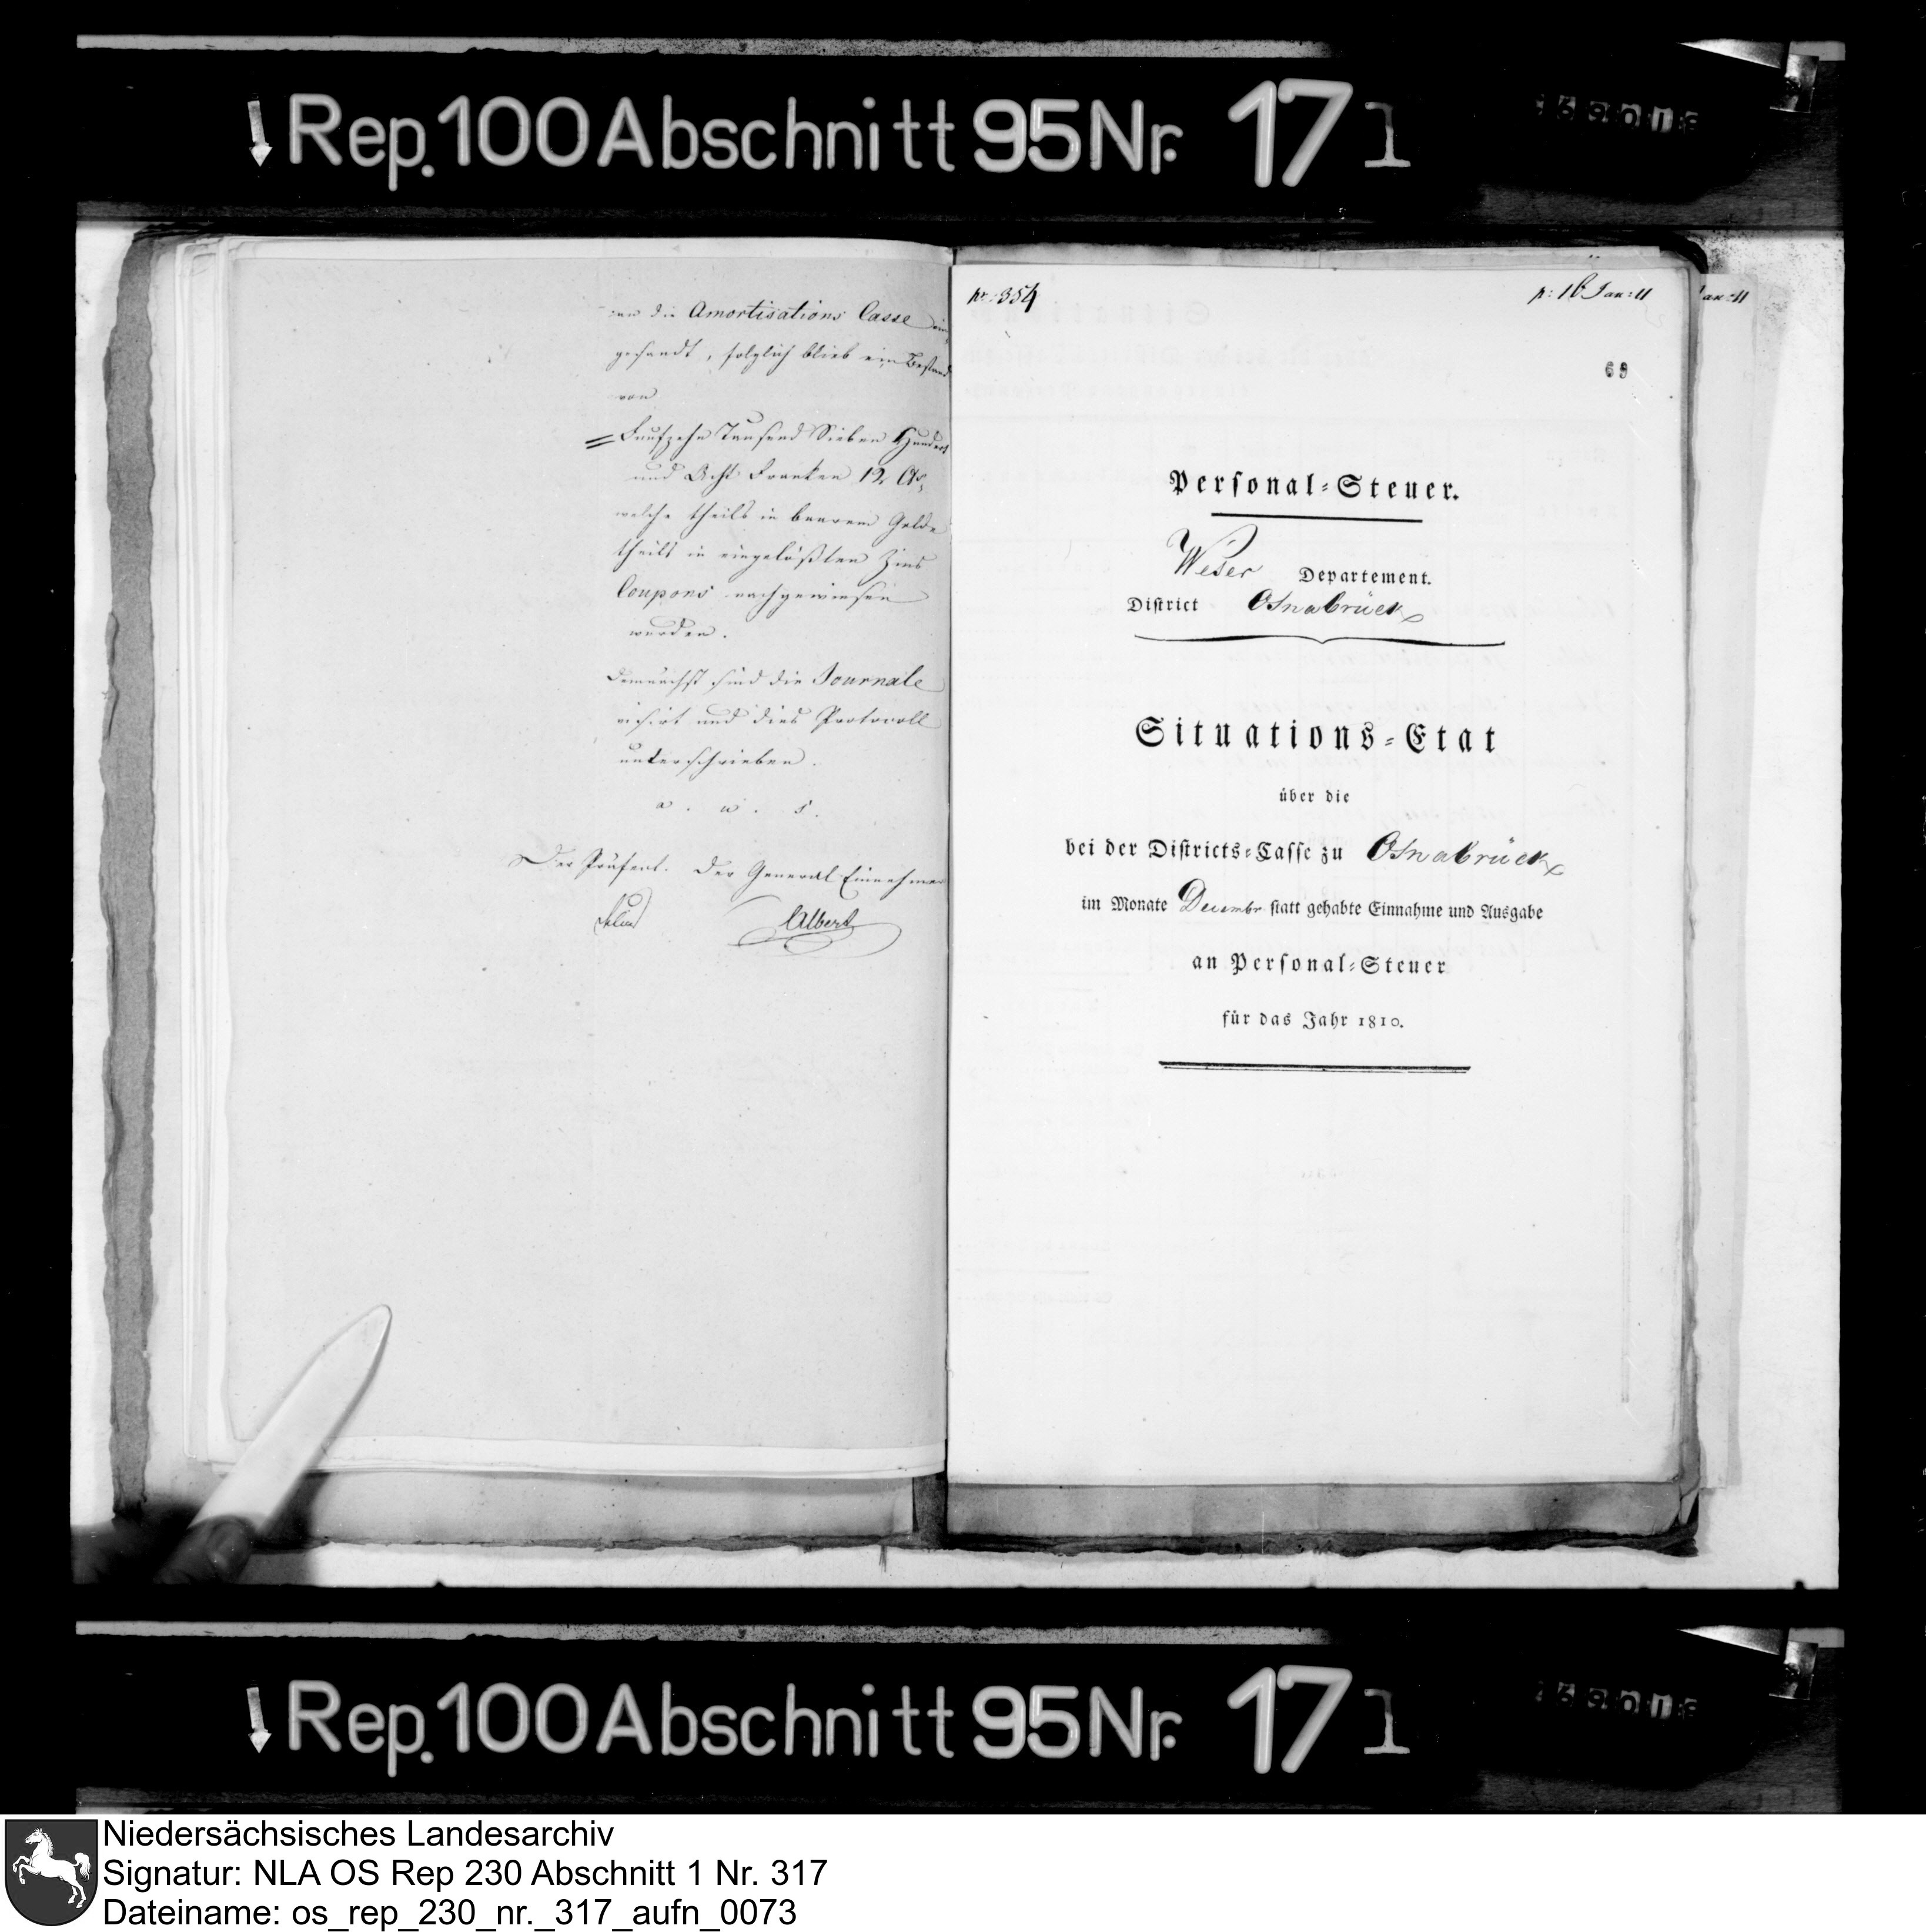 Rep. 100 Abschnitt 95 Nr. 17 1
an die Amortisations Casse ein
gesandt, folglich blieb ein Bestand
von
Funfzehn Tausend Sieben Hundert
und Acht Franken 12 Cs,
welche theils in baarem Gelde
theils in eingelößten Zins
Coupons nachgewiesen
wurden.
Demnächst sind die Journale
visirt und dies Protocoll
unterschrieben.
a. u. s.
Der Präfect. Der General Einnehmer
Albert
nr. 354
p: 16 Jan: 11
an: 11
69
Personal-Steuer.
Weser Departement.
District Osnabrück
Situations-Etat
über die
bei der Districts-Casse zu Osnabrück
im Monate Decembr statt gehabte Einnahme und Ausgabe
an Personal-Steuer
für das Jahr 1810.
Rep. 100 Abschnitt 95 Nr. 17 1
Niedersächsisches Landesarchiv
Signatur: NLA OS Rep 230 Abschnitt 1 Nr. 317
Dateiname: os_rep_230_nr._317_aufn_0073